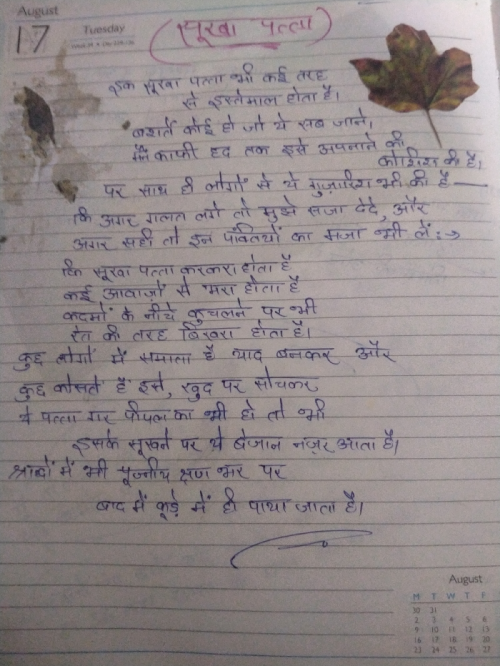 August
17
Tuesday
(सूखा पत्ता)
इक सूखा पत्ता भी कई तरह
से इस्तेमाल होता है।
बशर्ते कोई हो जो ये सब जाने,
मैंने काफी हद तक इसे अपनाने की
कोशिश की है।
पर साथ ही लोगों से ये गुज़ारिश भी की है —
कि अगर गलत लगे तो मुझे सजा देदे, और
अगर सही तो इन पंक्तियों का मजा भी लें :→
कि सूखा पत्ता करकरा होता है
कई आवाजों से भरा होता है
कदमों के नीचे कुचलने पर भी
रेत की तरह बिखरा होता है।
कुछ लोगों में समाता है याद बनकर और
कुछ कोसते हैं इसे, खुद पर सोचकर
ये पत्ता गर पीपल का भी हो तो भी
इसके सूखने पर ये बेजान नज़र आता है।
श्राद्धों में भी पूज्नीय क्षण भर पर
बाद में कूड़े में ही पाया जाता है।
August
M T W T F S
30 31
2 3 4 5 6
9 10 11 12 13
16 17 18 19 20
23 24 25 26 27